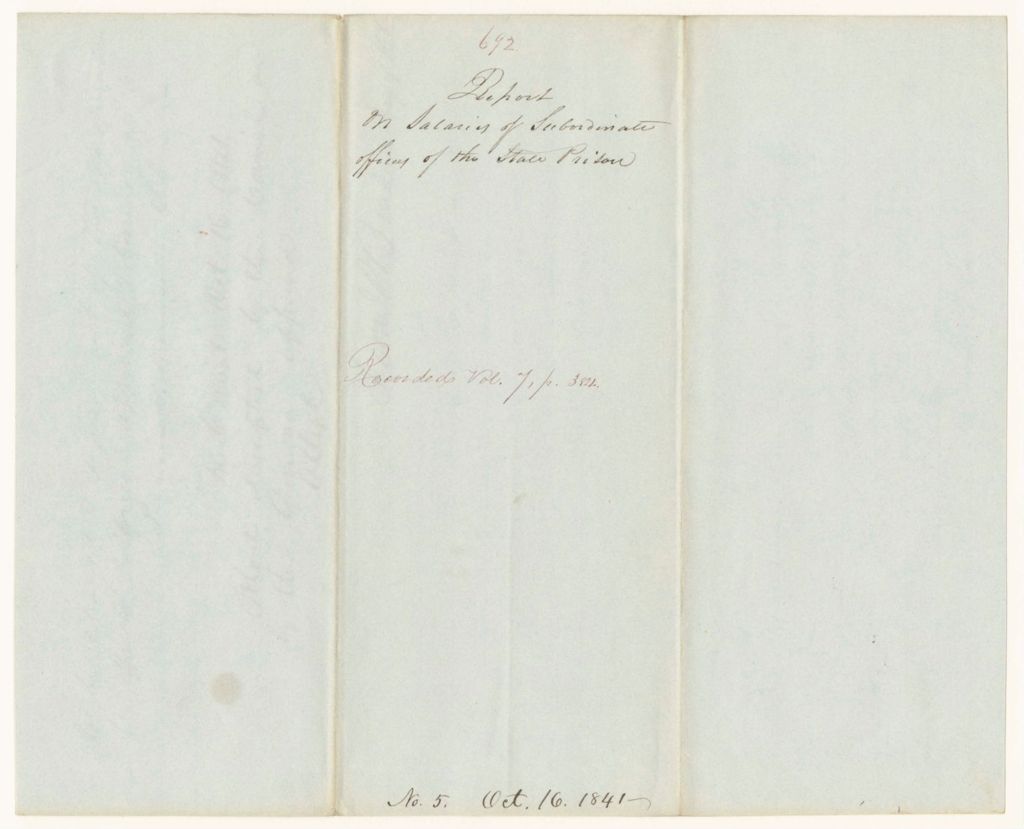 692
Report
On Salaries of Subordinate
officers of the State Prison
Recorded Vol. 7, p. 
No. 5. Oct. 16. 1841